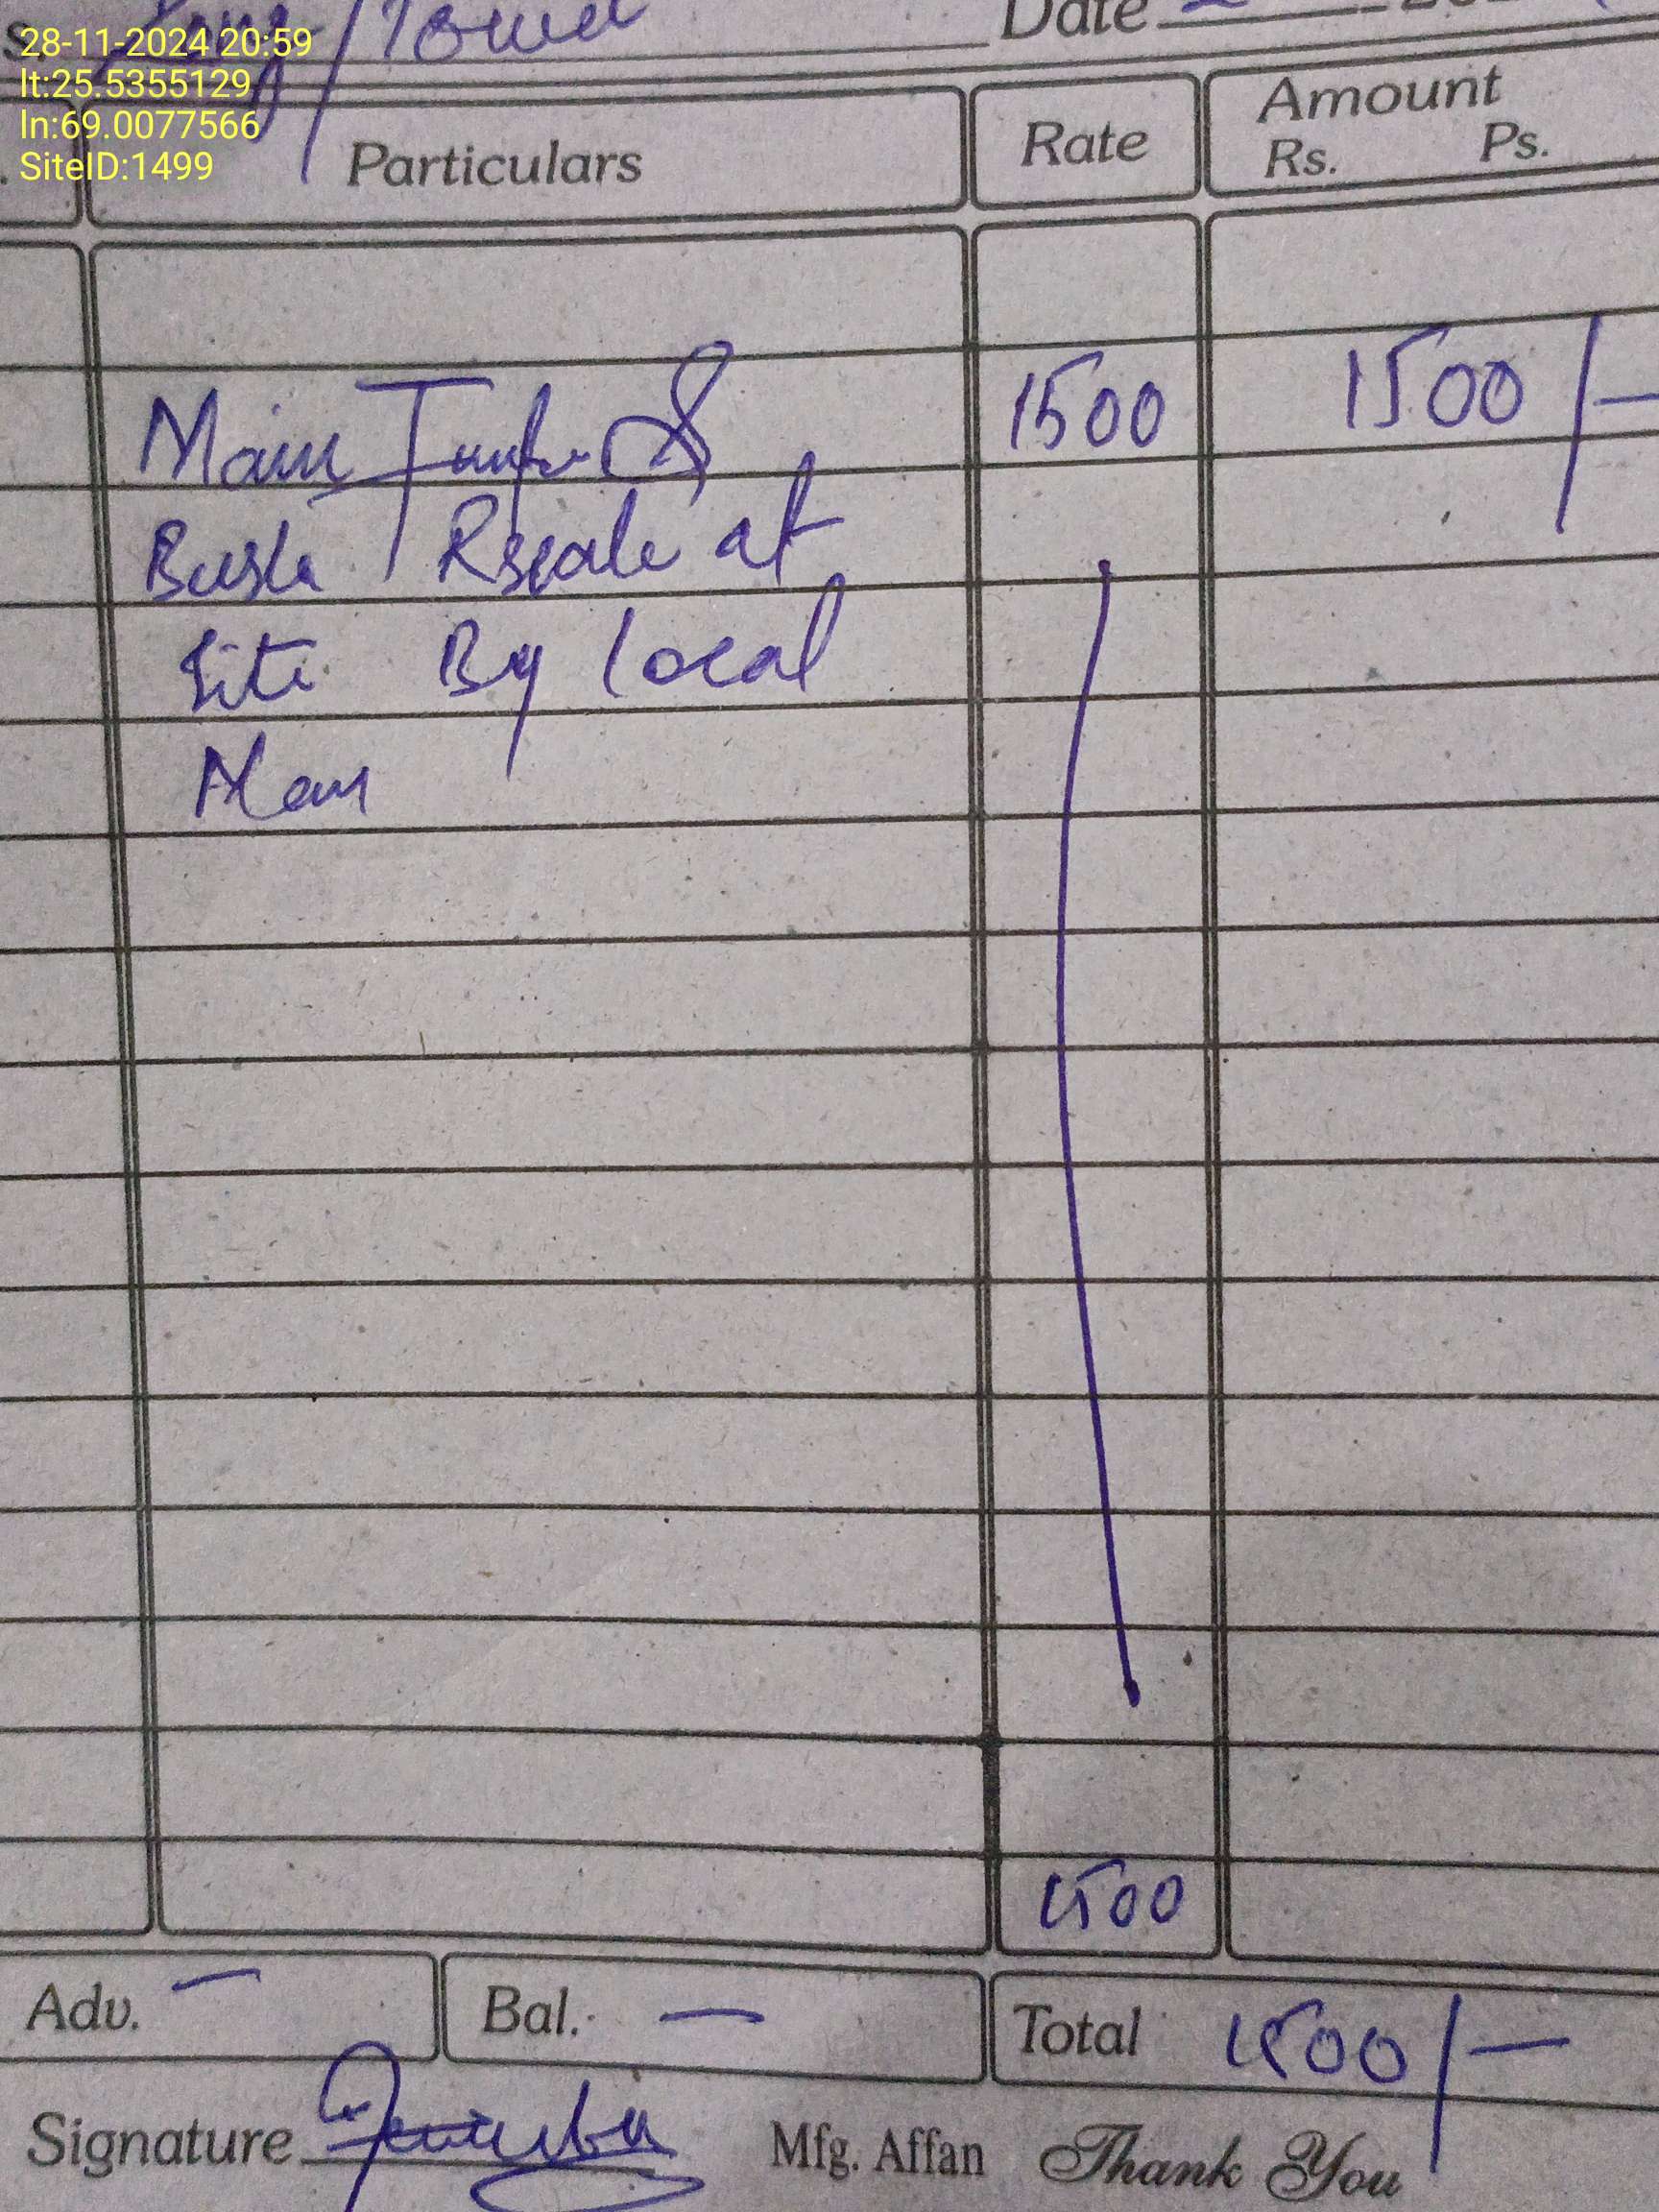 28-11-2024 20:59
lt:25.5355129
ln:69.0077566
SiteID:1499
Date
Particulars Rate Amount
Rs. Ps.
Main 1500 1500/-
at
Site By local
Man
1500
Adv. - Bal. - Total 1500/-
Signature Mfg. Affan Thank You